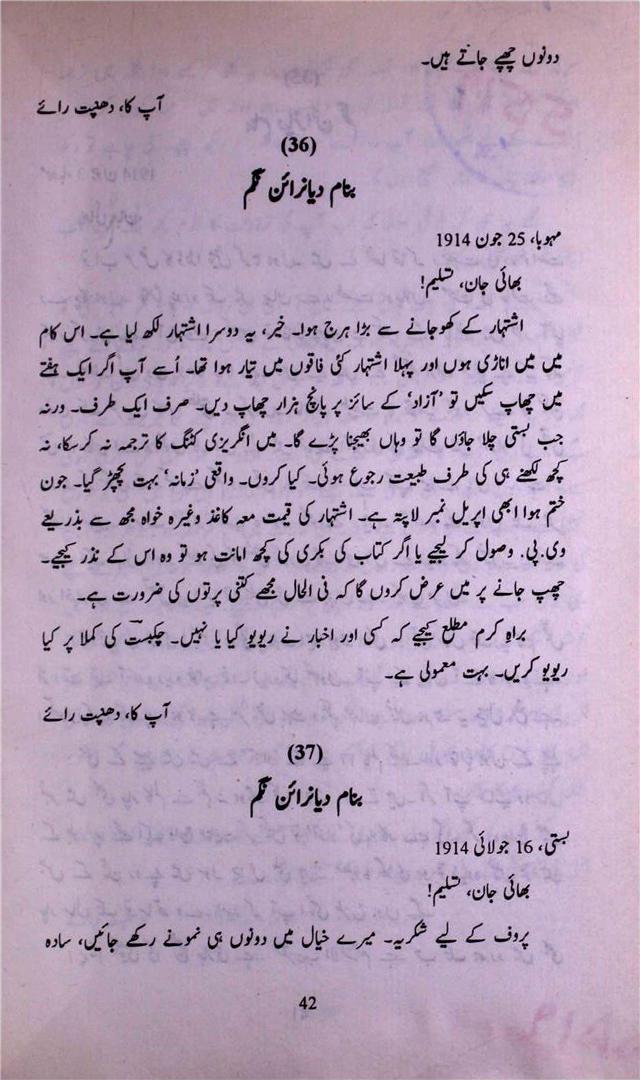 دونوں چھپے جاتے ہیں۔
آپ کا، دھنپت رائے
(36)
بنام دیا نرائن نگم
مہوبا، 25 جون 1914
بھائی جان، تسلیم!
اشتہار کے کھو جانے سے بڑا ہرج ہوا۔ خیر، یہ دوسرا اشتہار لکھ لیا ہے۔ اس کام
میں میں اناڑی ہوں اور پہلا اشتہار کئی فاقوں میں تیار ہوا تھا۔ اُسے آپ اگر ایک ہفتے
میں چھاپ سکیں تو ’آزاد‘ کے سائز پر پانچ ہزار چھاپ دیں۔ صرف ایک طرف۔ ورنہ
جب بستی چلا جاؤں گا تو وہاں بھیجنا پڑے گا۔ میں انگریزی کٹنگ کا ترجمہ نہ کر سکا، نہ
کچھ لکھنے ہی کی طرف طبیعت رجوع ہوئی۔ کیا کروں۔ واقعی ’زمانہ‘ بہت پچھڑ گیا۔ جون
ختم ہوا ابھی اپریل نمبر لاپتہ ہے۔ اشتہار کی قیمت معہ کاغذ وغیرہ خواہ مجھ سے بذریعے
وی.پی. وصول کر لیجیے یا اگر کتاب کی بکری کی کچھ امانت ہو تو وہ اس کے نذر کیجیے۔
چھپ جانے پر میں عرض کروں گا کہ فی الحال مجھے کتنی پرتوں کی ضرورت ہے۔
براہِ کرم مطلع کیجیے کہ کسی اور اخبار نے ریویو کیا یا نہیں۔ چکبست کی کملا پر کیا
ریویو کریں۔ بہت معمولی ہے۔
آپ کا، دھنپت رائے
(37)
بنام دیا نرائن نگم
بستی، 16 جولائی 1914
بھائی جان، تسلیم!
پروف کے لیے شکریہ۔ میرے خیال میں دونوں ہی نمونے رکھے جائیں، سادہ
42